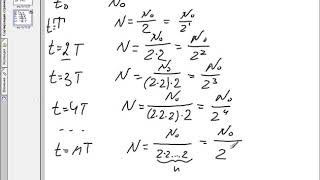 t₀ N₀
t=T N = N₀/2 = N₀/2¹
t=2T N = N₀/(2·2) = N₀/2²
t=3T N = N₀/((2·2)·2) = N₀/2³
t=4T N = N₀/((2·2·2)·2) = N₀/2⁴
...
t=nT N = N₀/(2·2...2) = N₀/2
n